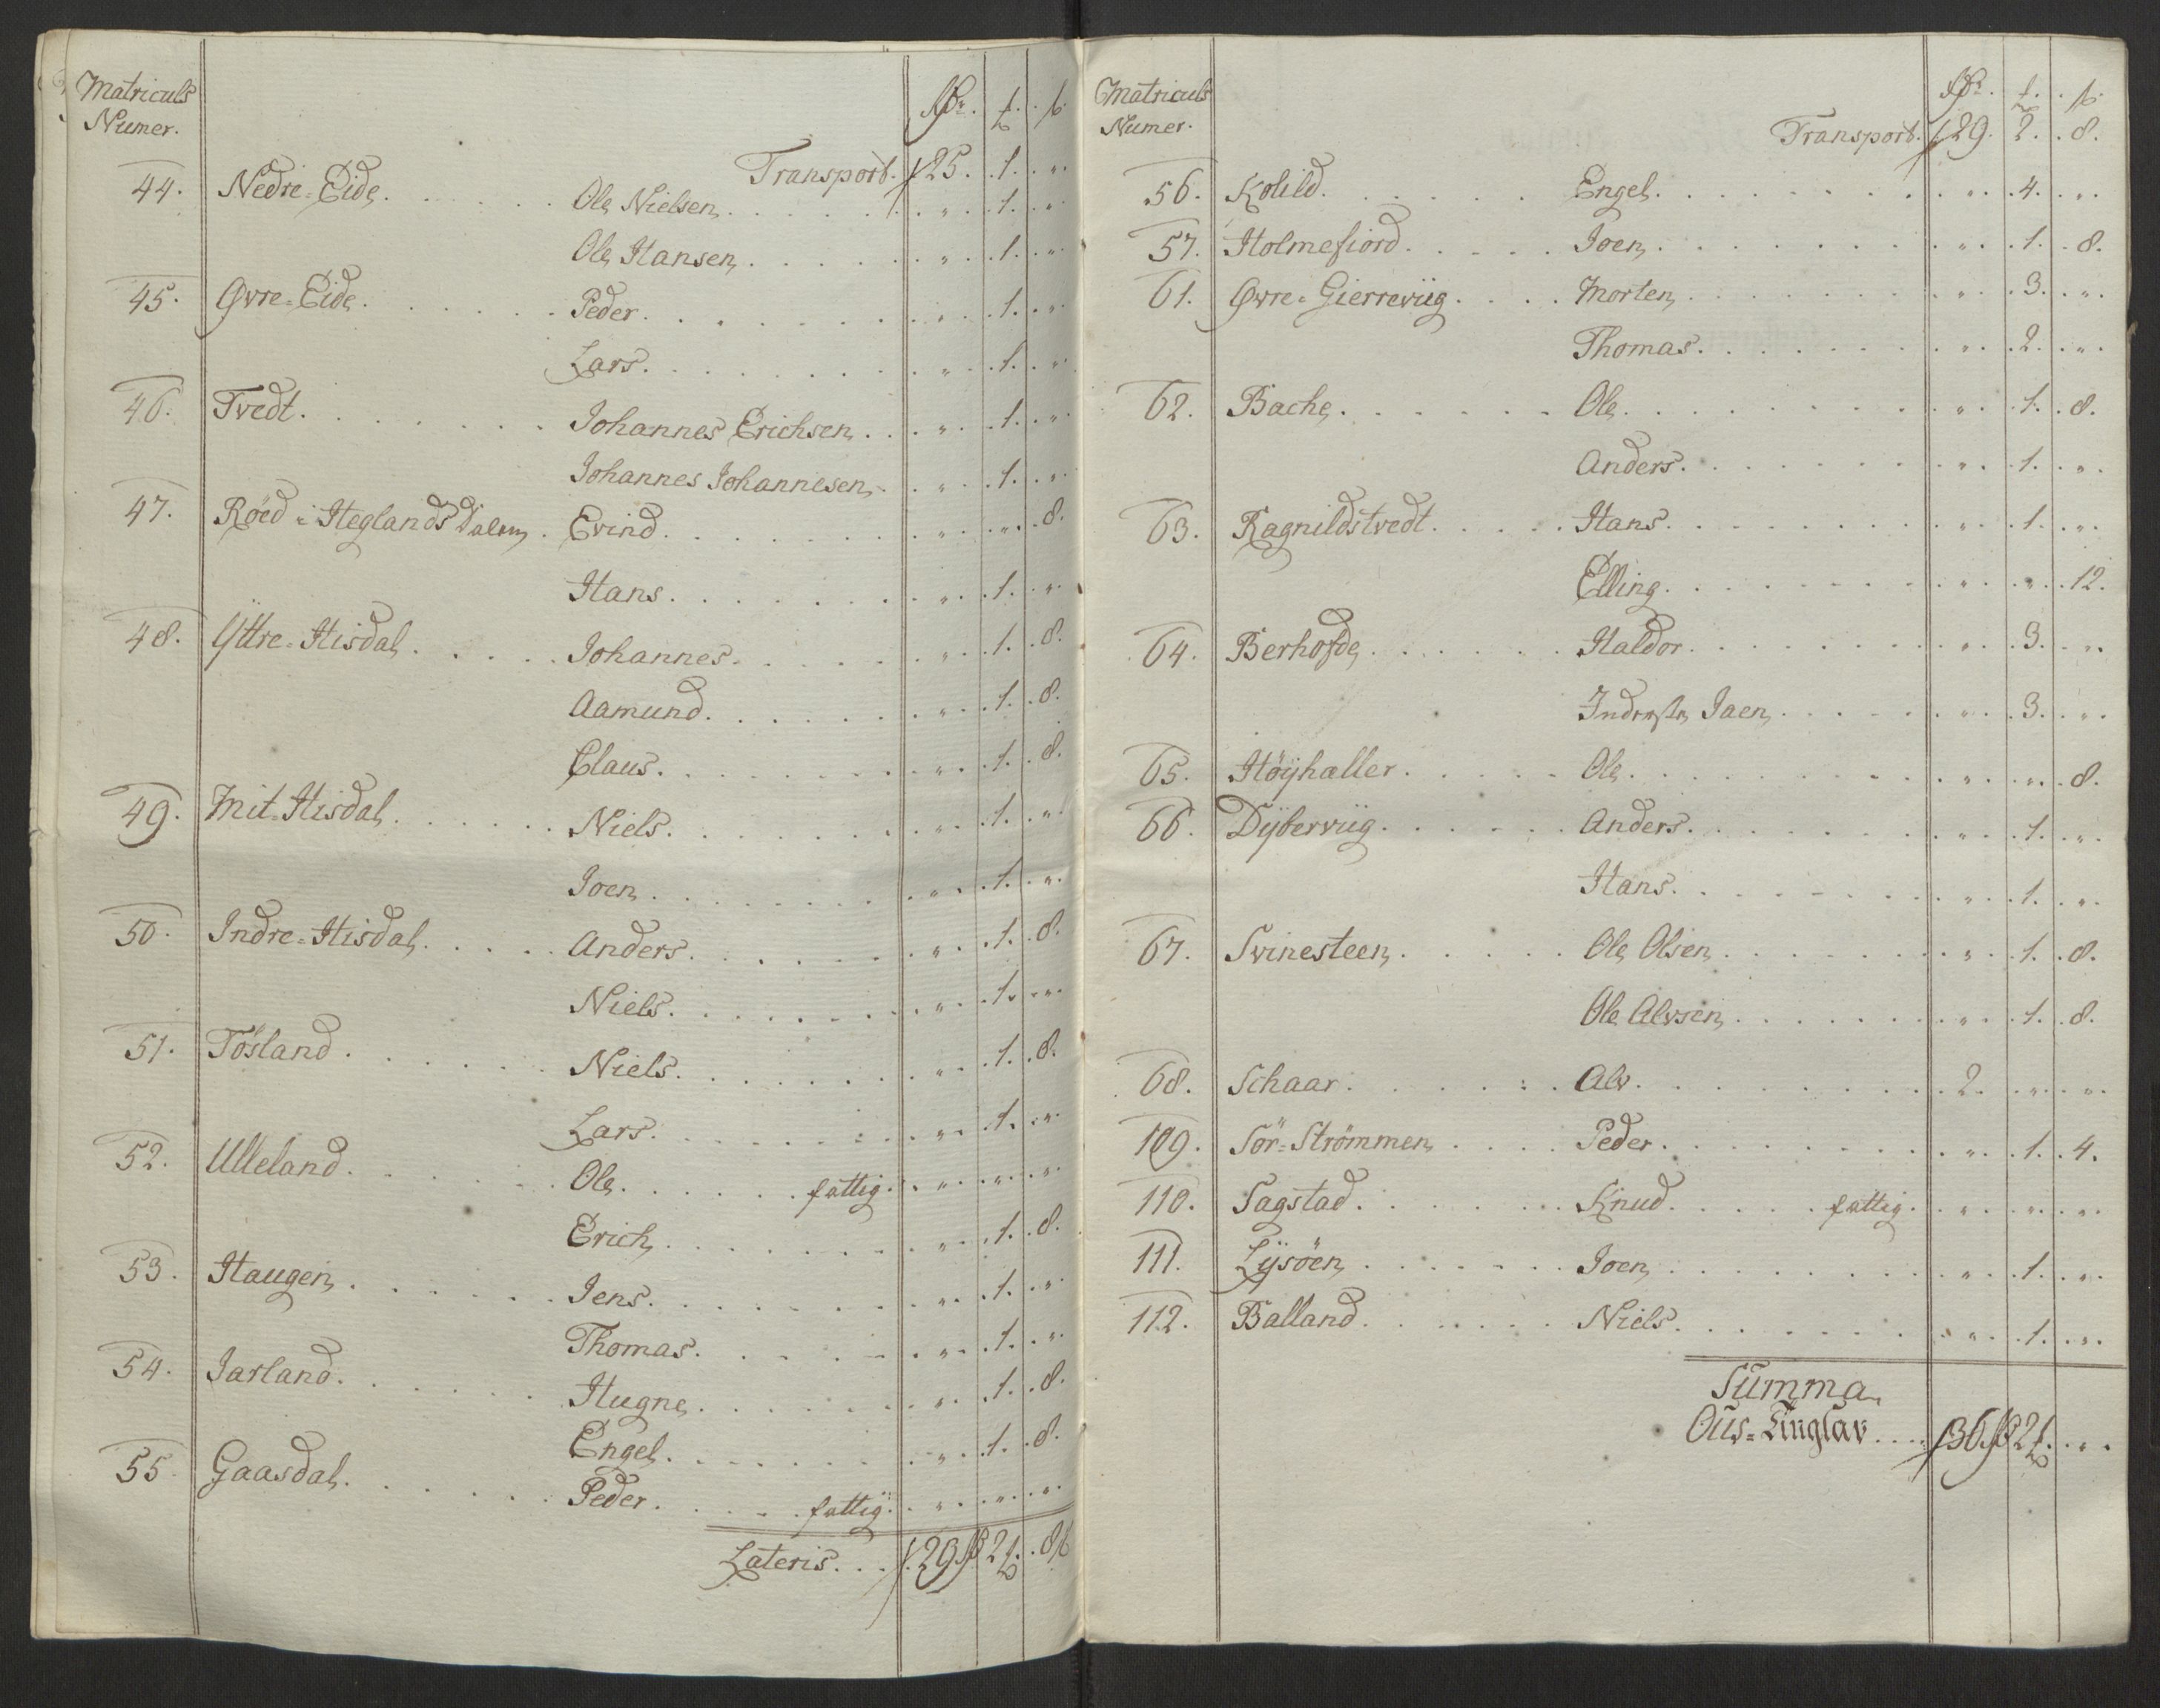 Matriculs
Numer.
Transport. 125. 1. "
44. Nedre=Eide. Ole Nielsen. " 1. "
Ole Hansen. " 1. "
45. Øvre=Eide. Peder. " 1. "
Lars. " 1. "
46. Tvedt. Johannes Erichsen. " 1. "
Johannes Johannesen. " 1. "
47. Röed i Heglands Dalen. Evind. " " 8.
Hans. " 1. "
48. Ÿttre=Hisdal. Johannes. " 1. 8.
Aamund. " 1. 8.
Claus. " 1. 8.
49. Mit=Hisdal. Niels. " 1. "
Joen. " 1. "
50. Indre=Hisdal. Anders. " 1. 8.
Niels. " 1. "
51. Tösland. Niels. " 1. 8.
Lars. " 1. "
52. Ulleland. Ole. fattig. " " "
Erich. " 1. 8.
53. Haugen. Jens. " 1. "
Thomas. " 1. "
54. Jarland. Hugne. " 1. 8.
Engel. " 1. 8.
55. Gaasdal. Peder. fattig. " " "
Lateris. 129 2 8
Matriculs
Numer.
Transport. 129. 2. 8.
56. Kolild. Engel. " 4. "
57. Holmefiord. Joen. " 1. 8.
61. Øvre=Gierreviig. Morten. " 3. "
Thomas. " 2. "
62. Bache. Ole. " 1. 8.
Anders. " 1. "
63. Ragnildstvedt. Hans. " 1. "
Elling. " " 12.
64. Berhofde. Haldor. " 3. "
Inderste Jaen. " 3. "
65. Höÿhæller. Ole. " " 8.
66. Dÿberviig. Anders. " 1. "
Hans. " 1. "
67. Svinesteen. Ole Olsen. " 1. 8.
Ole Alvsen. " 1. 8.
68. Schaar. Alv. 2. " "
109. Sör=Strömmen. Peder. " 1. 4.
110. Sagstad. Knud. fattig. " " "
111. Lÿsöen. Joen. " 1. "
112. Balland. Niels. " 1. "
Summa
Ous=Tinglav. 136 2 "